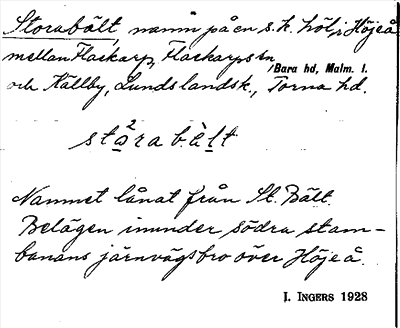 Storabält, namn på en s.k. höl i Höjeå
mellan Flackarp, Flackarps sn
/Bara hd, Malm. l.
och Källby, Lunds landsk., Torna hd.
stɑ̊²ra bɑ̀lt
Namnet lånat från St. Bält.
Belägen inunder södra stam-
banans järnvägsbro över Höjeå.
J. INGERS 1928